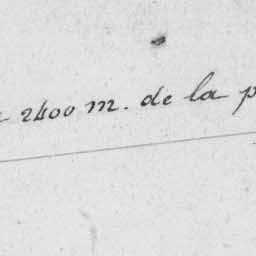 2400 m. de la